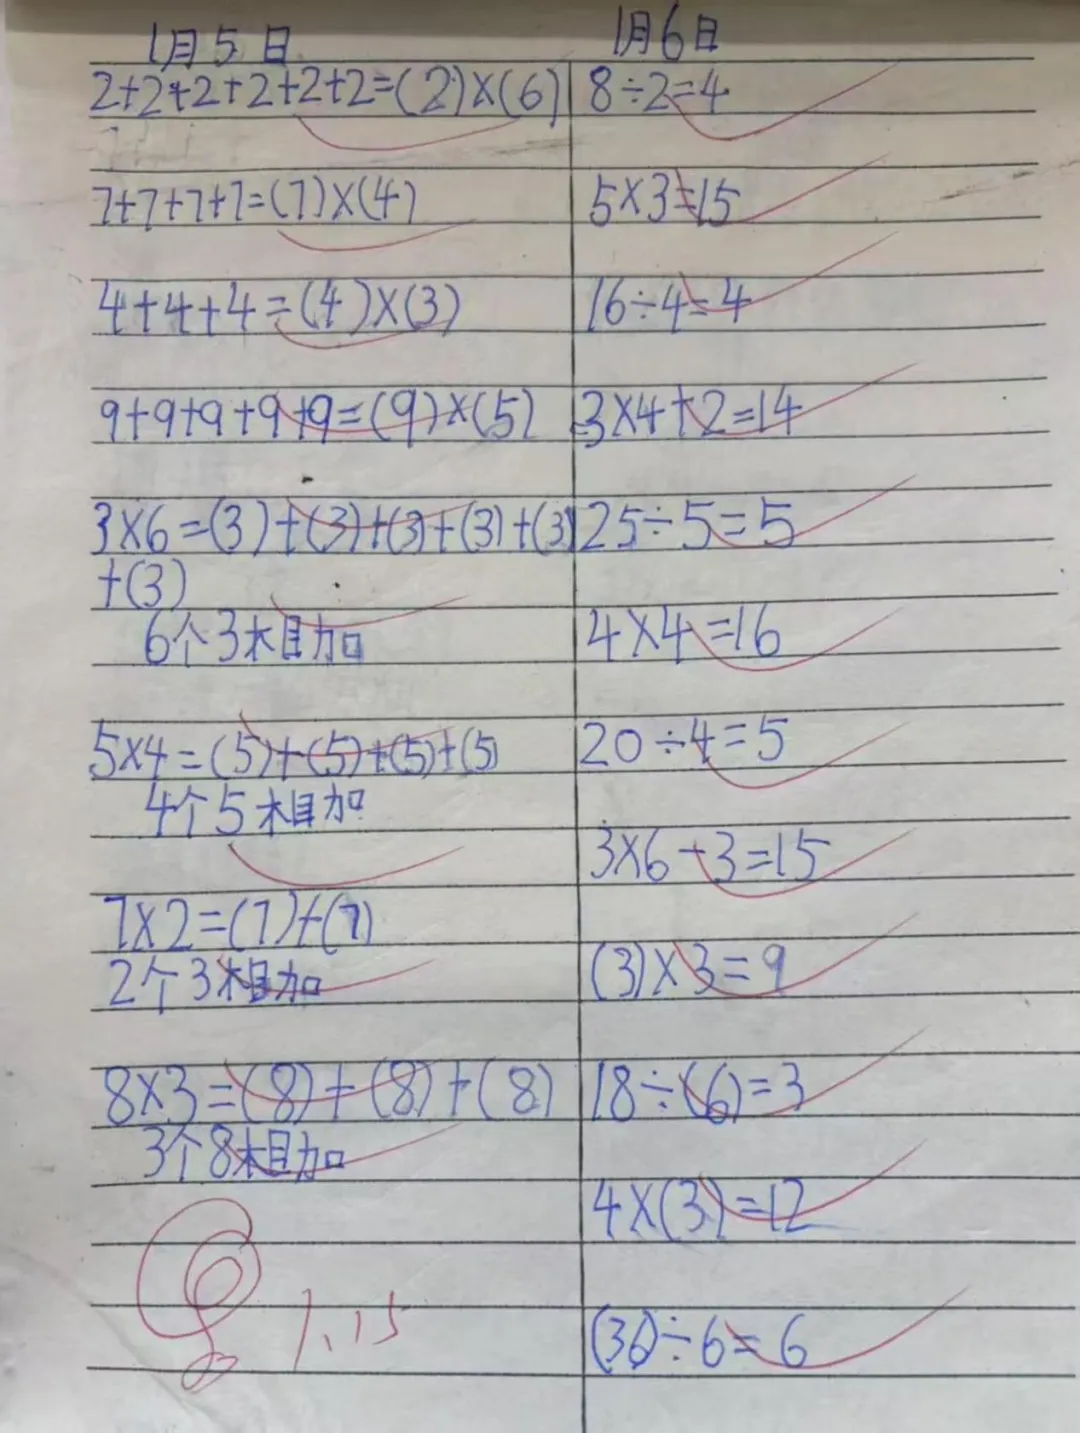 1月5日
2+2+2+2+2+2=(2)×(6)
7+7+7+7=(7)×(4)
4+4+4=(4)×(3)
9+9+9+9+9=(9)×(5)
3×6=(3)+(3)+(3)+(3)+(3)
+(3)
6个3相加
5×4=(5)+(5)+(5)+(5)
4个5相加
7×2=(7)+(7)
2个3相加
8×3=(8)+(8)+(8)
3个8相加
1.15
1月6日
8÷2=4
5×3=15
16÷4=4
3×4+2=14
25÷5=5
4×4=16
20÷4=5
3×6-3=15
(3)×3=9
18÷(6)=3
4×(3)=12
(36)÷6=6